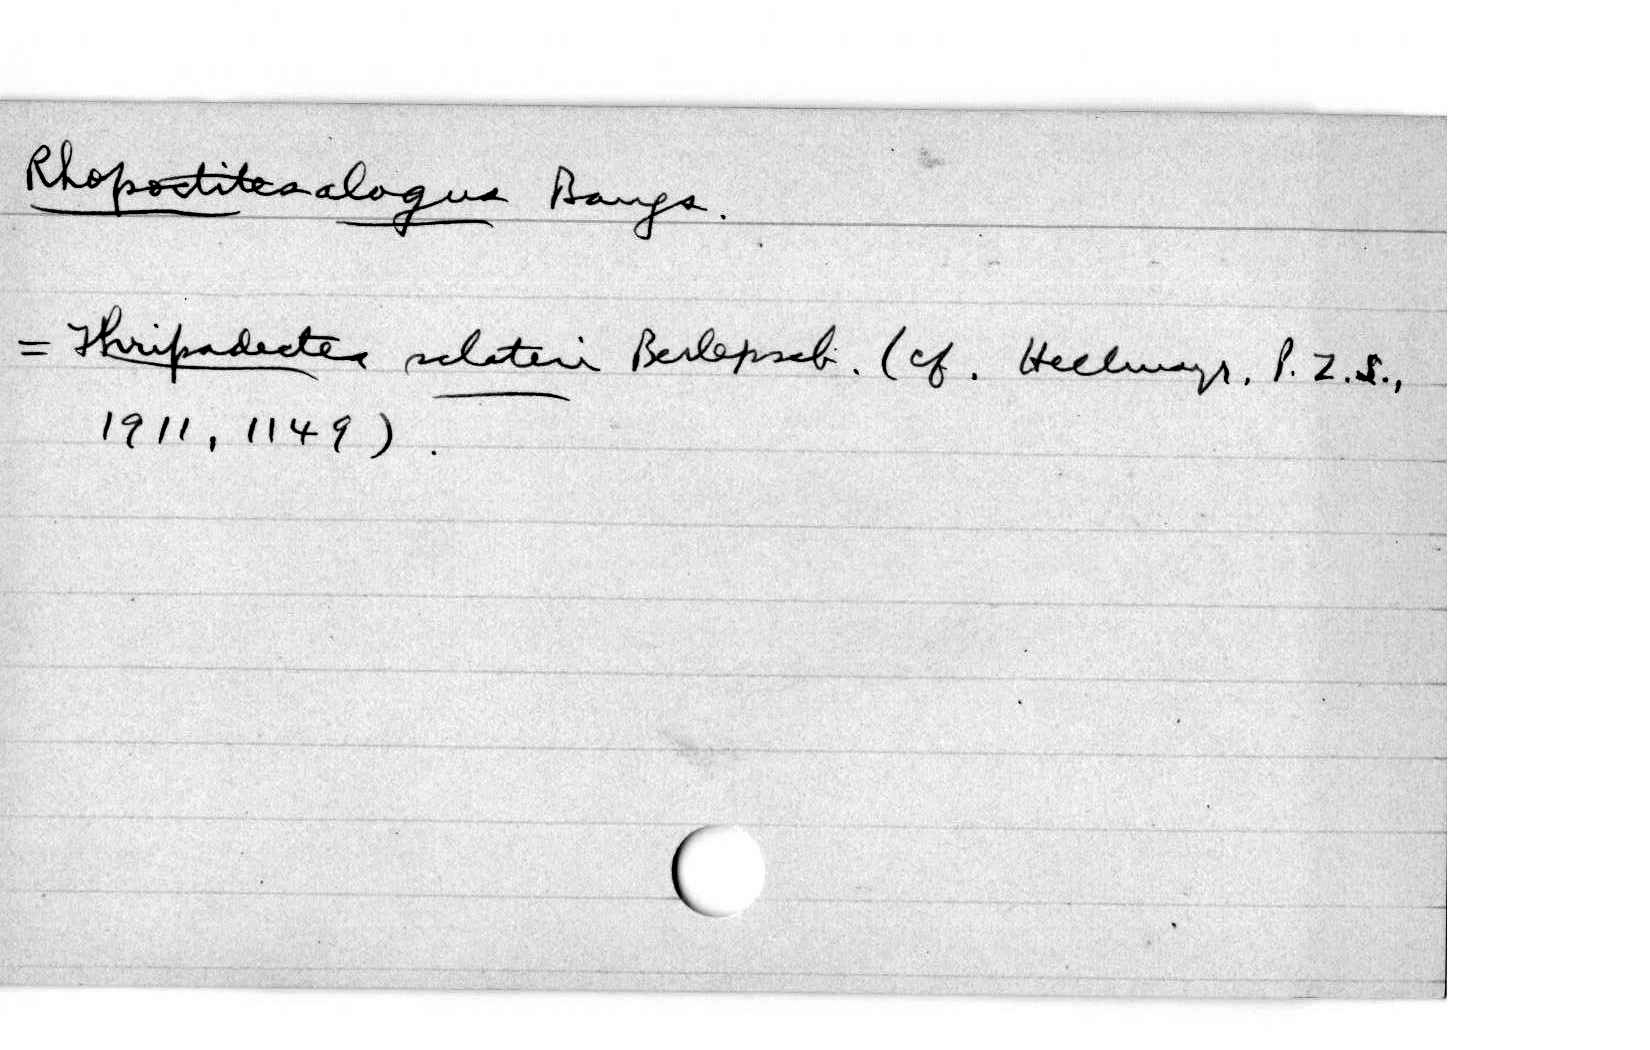 Rhopoctites alogus Bangs.
= Thripadectes sclateri Berlepsch. (cf. Hellmayr, P.Z.S.,
1911, 1149).